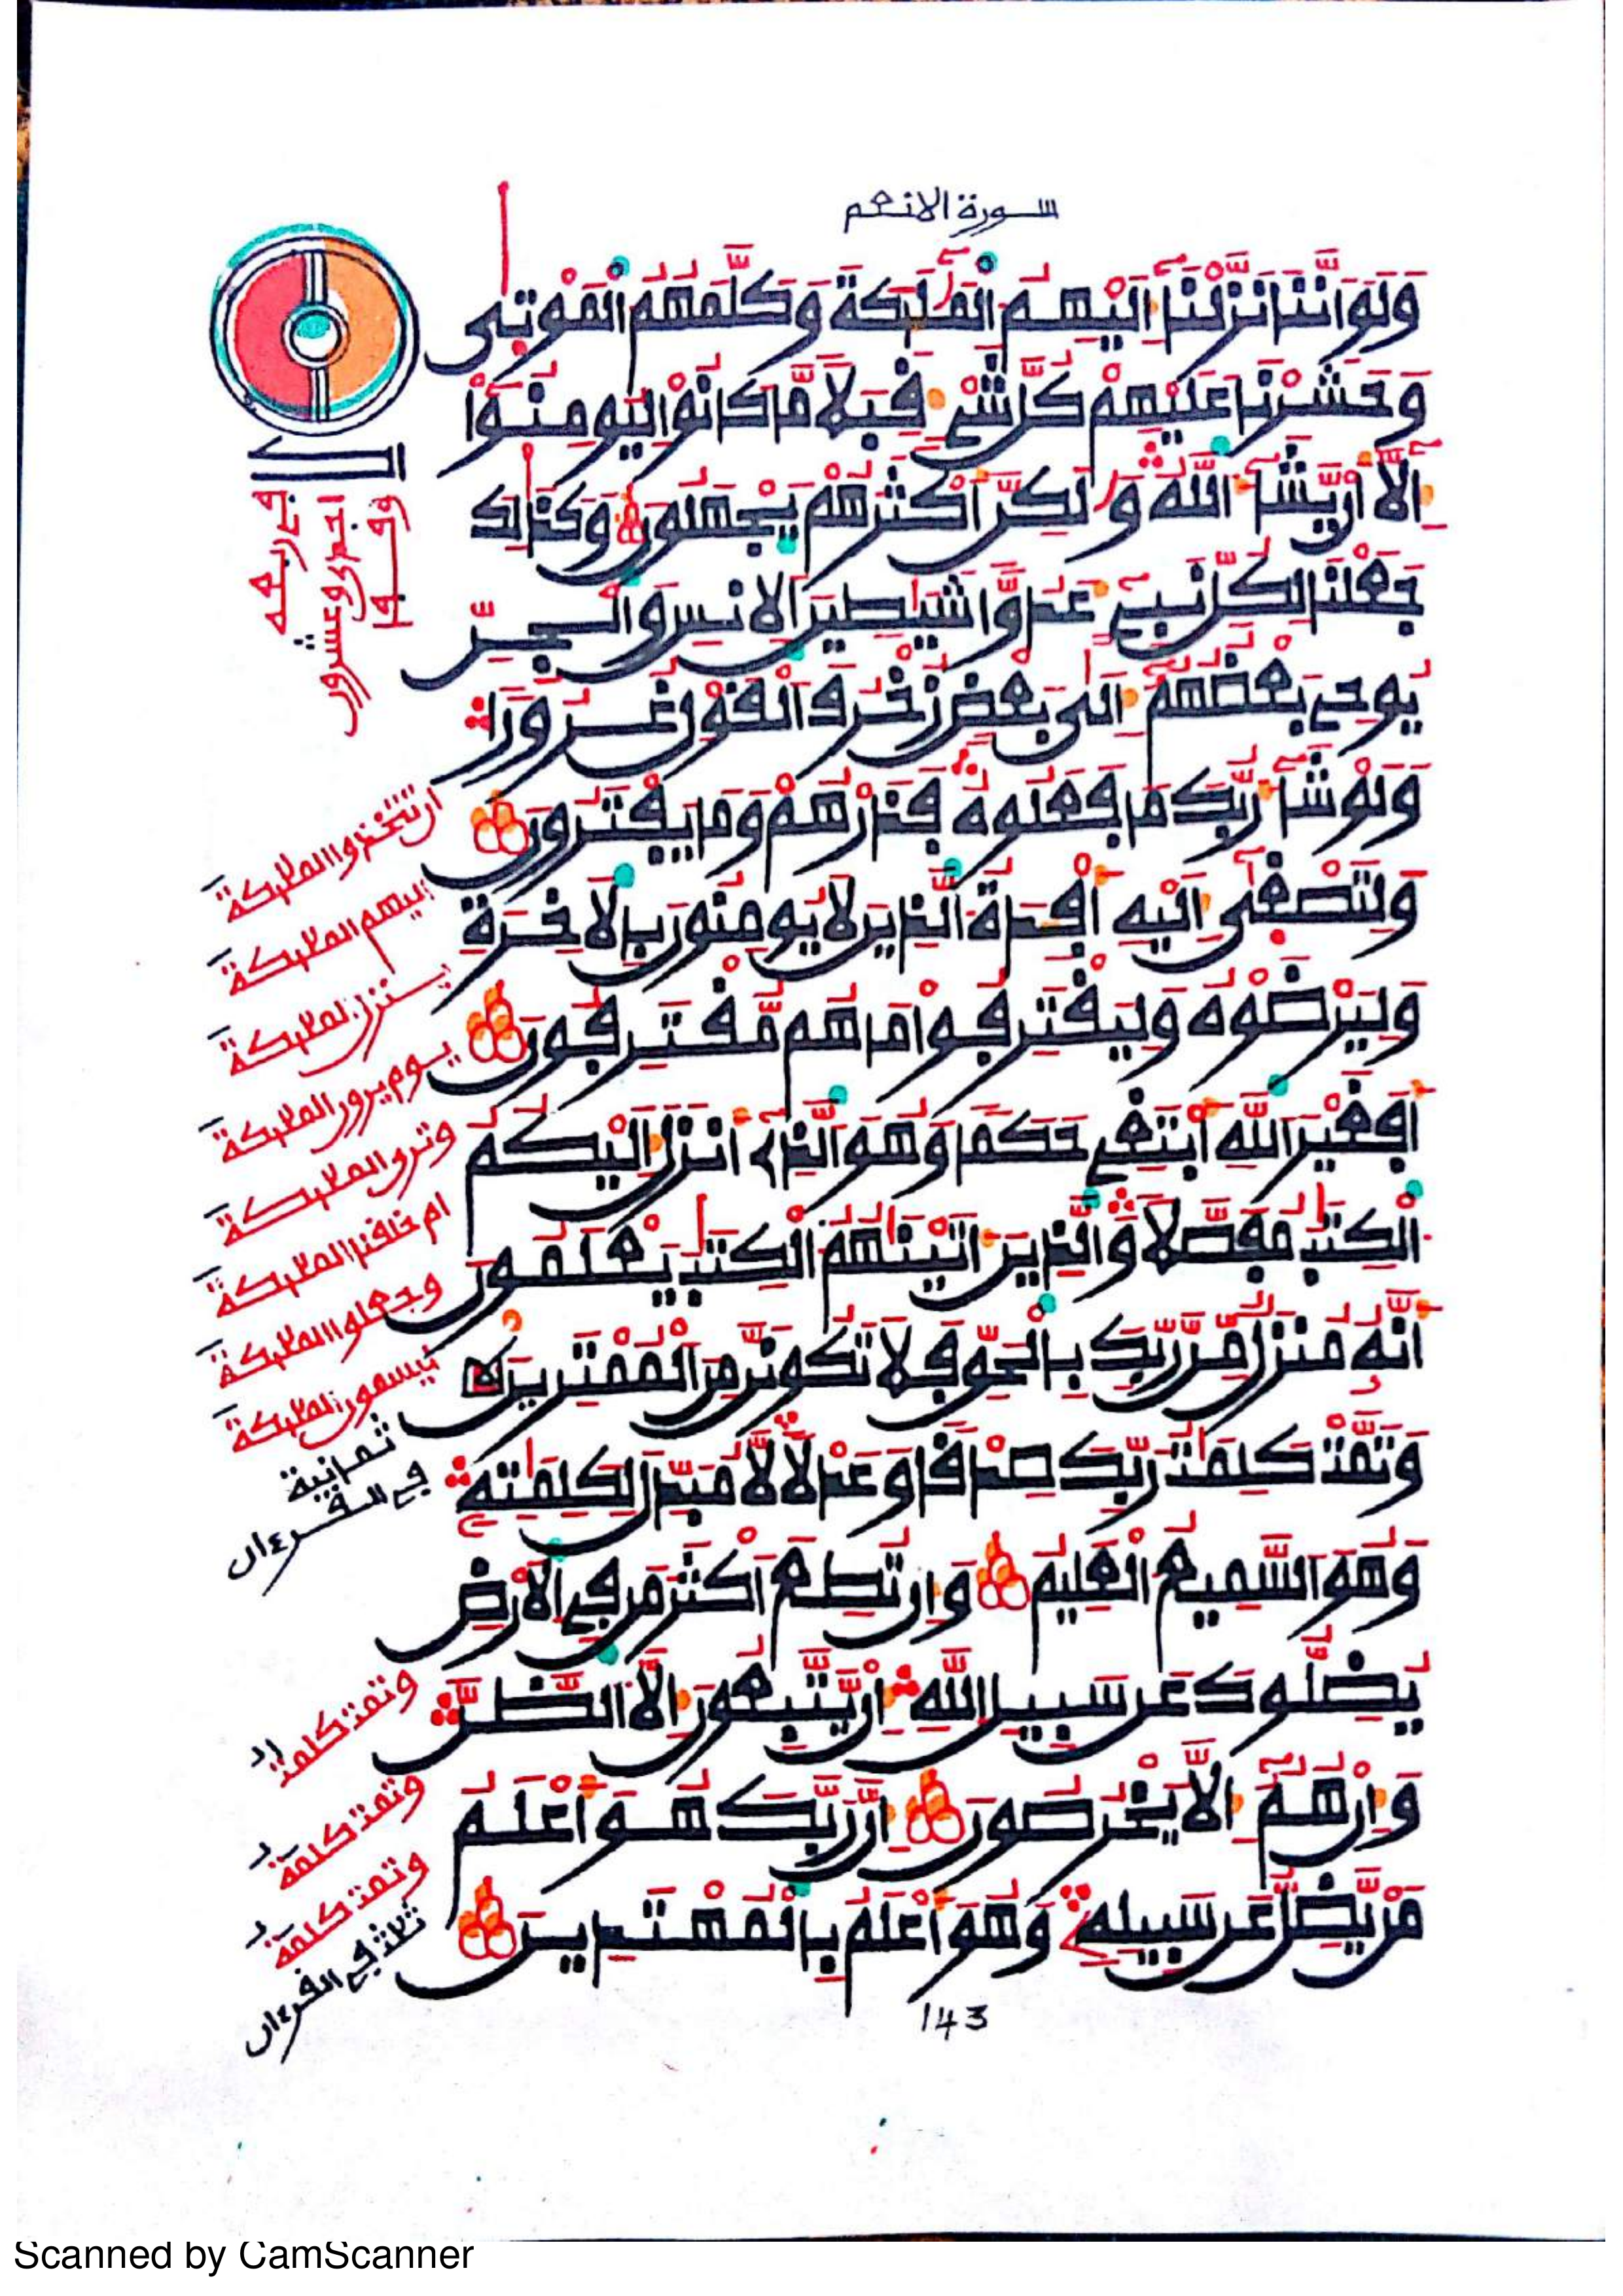 سورة الانعم
وَلَوَ اَنَّنَا نَزَّلْنَآ إِلَيْهِمُ الْمَلَٰٓئِكَةَ وَكَلَّمَهُمُ الْمَوْتٜىٰ
وَحَشَرْنَا عَلَيْهِمْ كُلَّ شَےْءٖ قِبَلاٗ مَّا كَانُواْ لِيُومِنُوٓاْ
إِلَّآ أَنْ يَّشَآءَ اَللَّهُ وَلَٰكِنَّ أَكْثَرَهُمْ يَجْهَلُونَ وَكَذَٰلِكَ
جَعَلْنَا لِكُلِّ نَبِےٓءٍ عَدُوّاٗ شَيَٰطِينَ اَلِانسِ وَالْجِنِّ
يُوحِے بَعْضُهُمُۥٓ إِلَىٰ بَعْضٖ زُخْرُفَ اَلْقَوْلِ غُرُوراٗ
وَلَوْ شَآءَ رَبُّكَ مَا فَعَلُوهُ فَذَرْهُمْ وَمَا يَفْتَرُونَ
وَلِتَصْغٜىٰٓ إِلَيْهِ أَفْـِٕدَةُ اُلذِينَ لَا يُومِنُونَ بِالَاخِرَةِ
وَلِيَرْضَوْهُ وَلِيَقْتَرِفُواْ مَا هُم مُّقْتَرِفُونَ
أَفَغَيْرَ اَللَّهِ أَبْتَغِے حَكَماٗ وَهُوَ اَلذِےٓ أَنزَلَ إِلَيْكُمُ
اُلْكِتَٰبَ مُفَصَّلاٗ وَالذِينَ ءَاتَيْنَٰهُمُ الْكِتَٰبَ يَعْلَمُونَ
أَنَّهُۥ مُنزَلٞ مِّن رَّبِّكَ بِالْحَقِّ فَلَا تَكُونَنَّ مِنَ اَلْمُمْتَرِينَ
وَتَمَّتْ كَلِمَٰتُ رَبِّكَ صِدْقاٗ وَعَدْلاٗ لَّا مُبَدِّلَ لِكَلِمَٰتِهِۦ
وَهُوَ اَلسَّمِيعُ الْعَلِيمُ وَإِن تُطِعَ اَكْثَرَ مَن فِے اِلَارْضِ
يُضِلُّوكَ عَن سَبِيلِ اِللَّهِ إِنْ يَّتَّبِعُونَ إِلَّا اَلظَّنَّ
وَإِنْ هُمُۥٓ إِلَّا يَخْرُصُونَ إِنَّ رَبَّكَ هُوَ أَعْلَمُ
مَنْ يَّضِلُّ عَن سَبِيلِهِۦ وَهُوَ أَعْلَمُ بِالْمُهْتَدِينَ
143
ان تتخذوا الملئكة
اليهم الملئكة
تنزل الملئكة
يوم يرون الملئكة
وترى الملئكة
ام خلقنا الملئكة
وجعلوا الملئكة
ليسمون الملئكة
ثمانية
في القرءان
وتمت كلمت
وتمت كلمة
وتمت كلمة
ثلث في القرءان
Scanned by CamScanner